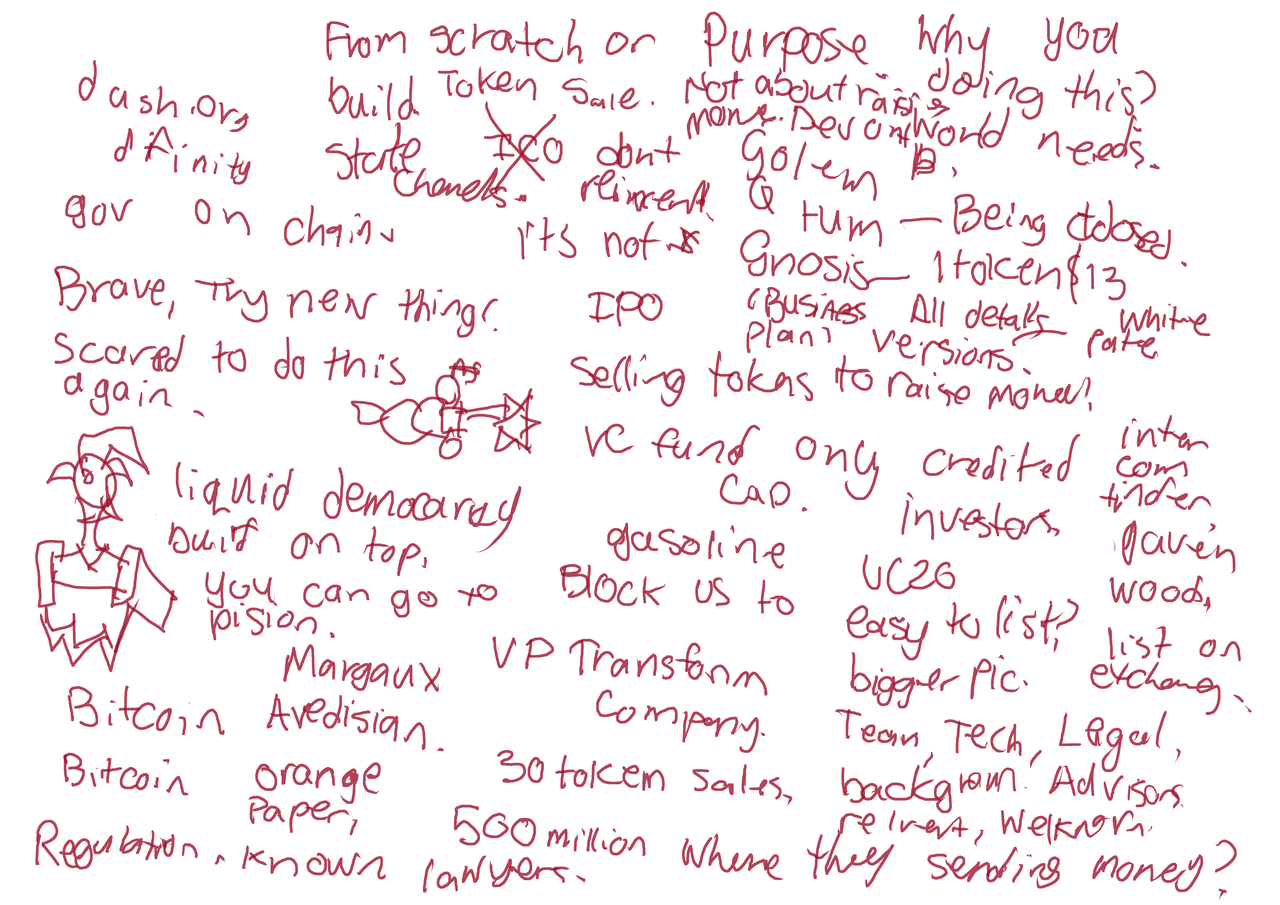 From scratch or Purpose Why you
dash.org build Token Sale. Not about raising doing this?
money. Dev on World needs.
dfinity state ICO dont Golem
channels. reinvent Q tum — Being closed.
gov on chain. It's not
Gnosis — 1 token $13
Brave, Try new thing! IPO "Business All details — white
Plan" versions.
Scared to do this selling tokens to raise money!
again.
VC fund only credited inter
com
liquid democracy Cap. investors tinder
built on top, gasoline gaven
you can go to Block us to VC26 woods,
pision. easy to list? list on
Margaux VP Transform bigger pic. exchang.
Bitcoin Avedisian. Company. Team, Tech, Legal,
Bitcoin orange 30 token sales, Advisors
Paper,
Regulation. known lawyers. 500 million where they sending money?